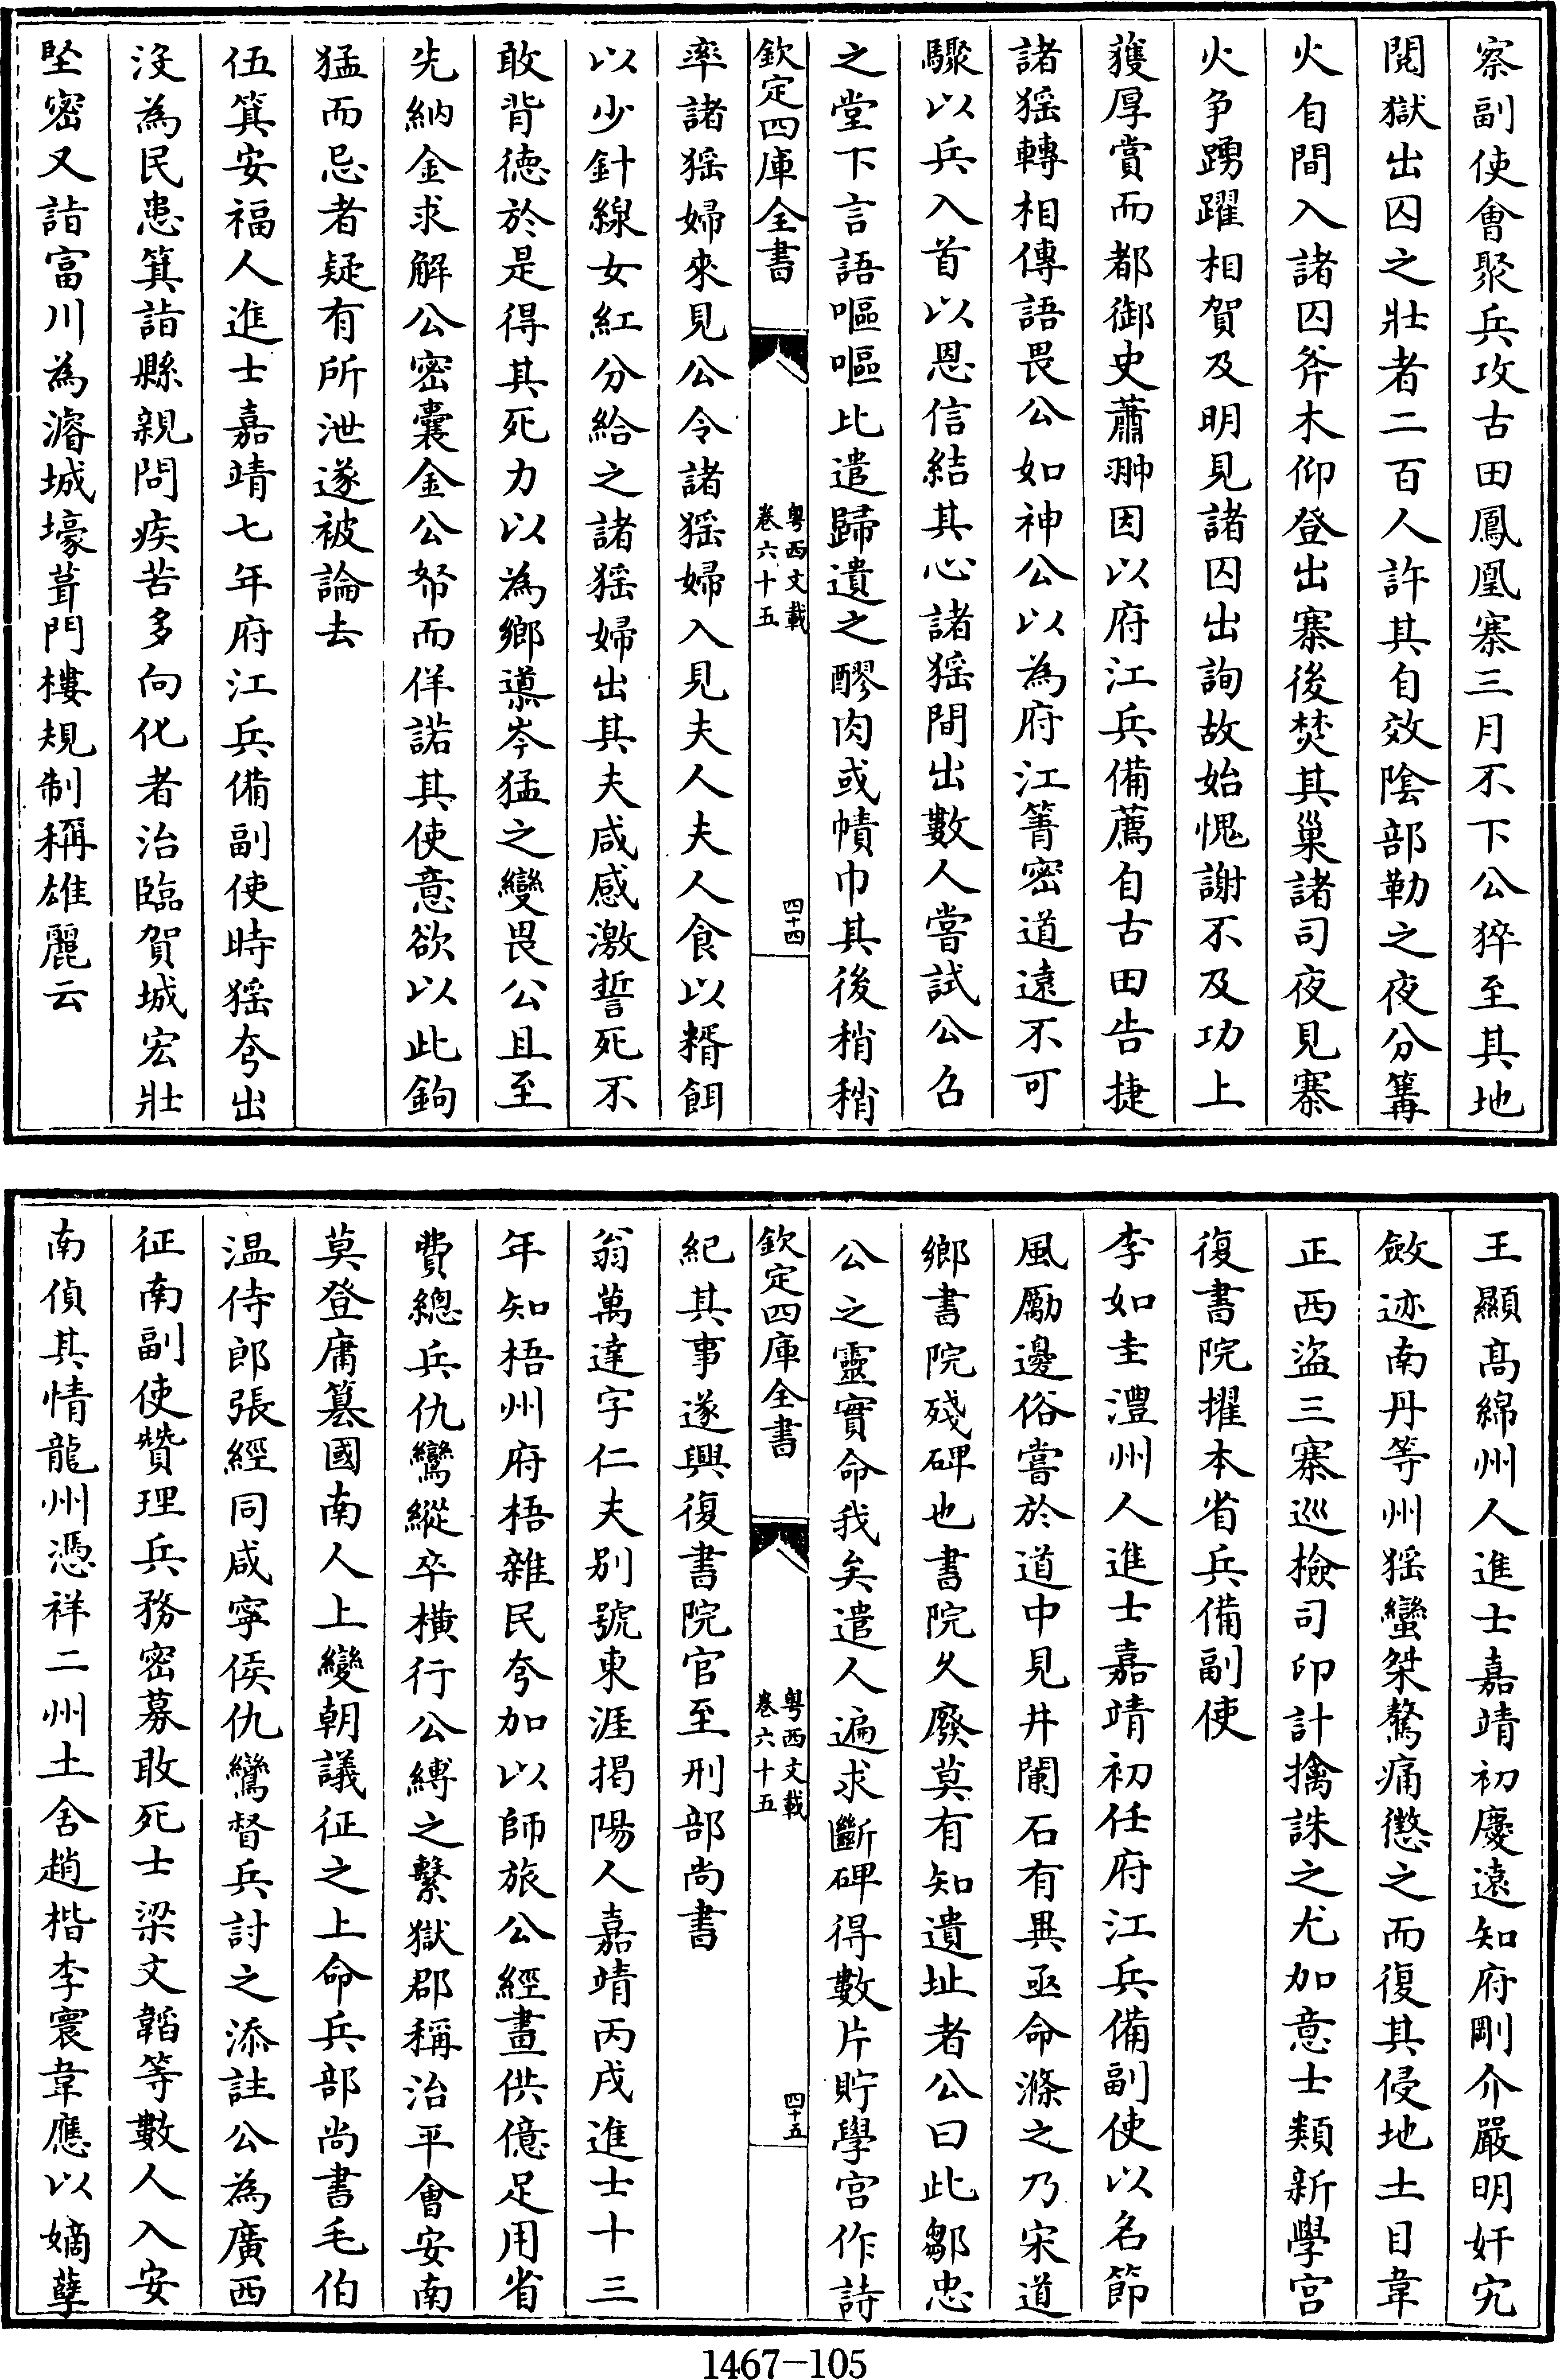 察副使會聚兵攻古田鳳凰寨三月不下公猝至其地
閱獄出囚之壯者二百人許其自效陰部勒之夜分篝
火自間入諸囚斧木仰登出寨後焚其巢諸司夜見寨
火争踴躍相賀及明見諸囚出詢故始愧謝不及功上
獲厚賞而都御史蕭翀因以府江兵備薦自古田告捷
諸猺轉相傳語畏公如神公以為府江箐密道遠不可
驟以兵入首以恩信結其心諸猺間出數人嘗試公召
之堂下言語嘔嘔比遣歸遺之醪肉或幘巾其後稍稍
欽定四庫全書
粤西文載
卷六十五
四十四
率諸猺婦來見公令諸猺婦入見夫人夫人食以糈餌
以少針線女紅分給之諸猺婦出其夫咸感激誓死不
敢背德於是得其死力以為鄉導岑猛之變畏公且至
先納金求解公密囊金公帑而佯諾其使意欲以此鉤
猛而忌者疑有所泄遂被論去
伍箕安福人進士嘉靖七年府江兵備副使時猺夸出
没為民患箕詣縣親問疾苦多向化者治臨賀城宏壯
堅密又詣富川為濬城壕葺門樓規制稱雄麗云
王顯高綿州人進士嘉靖初慶遠知府剛介嚴明奸宄
斂迹南丹等州猺蠻桀驁痛懲之而復其侵地土目韋
正西盜三寨巡檢司印計擒誅之尤加意士類新學宫
復書院擢本省兵備副使
李如圭澧州人進士嘉靖初任府江兵備副使以名節
風厲邊俗嘗於道中見井闌石有異亟命滌之乃宋道
鄉書院殘碑也書院久廢莫有知遺址者公曰此鄒忠
公之靈實命我矣遣人遍求斷碑得數片貯學宫作詩
欽定四庫全書
粤西文載
卷六十五
四十五
紀其事遂興復書院官至刑部尚書
翁萬達字仁夫别號東涯揭陽人嘉靖丙戌進士十三
年知梧州府梧雜民夸加以師旅公經畫供億足用省
費總兵仇鸞縱卒横行公縛之繫獄郡稱治平會安南
莫登庸簒國南人上變朝議征之上命兵部尚書毛伯
温侍郎張經同咸寧侯仇鸞督兵討之添註公為廣西
征南副使贊理兵務密募敢死士梁文韜等數人入安
南偵其情龍州憑祥二州土舍趙楷李寰韋應以嫡孽
1467-105